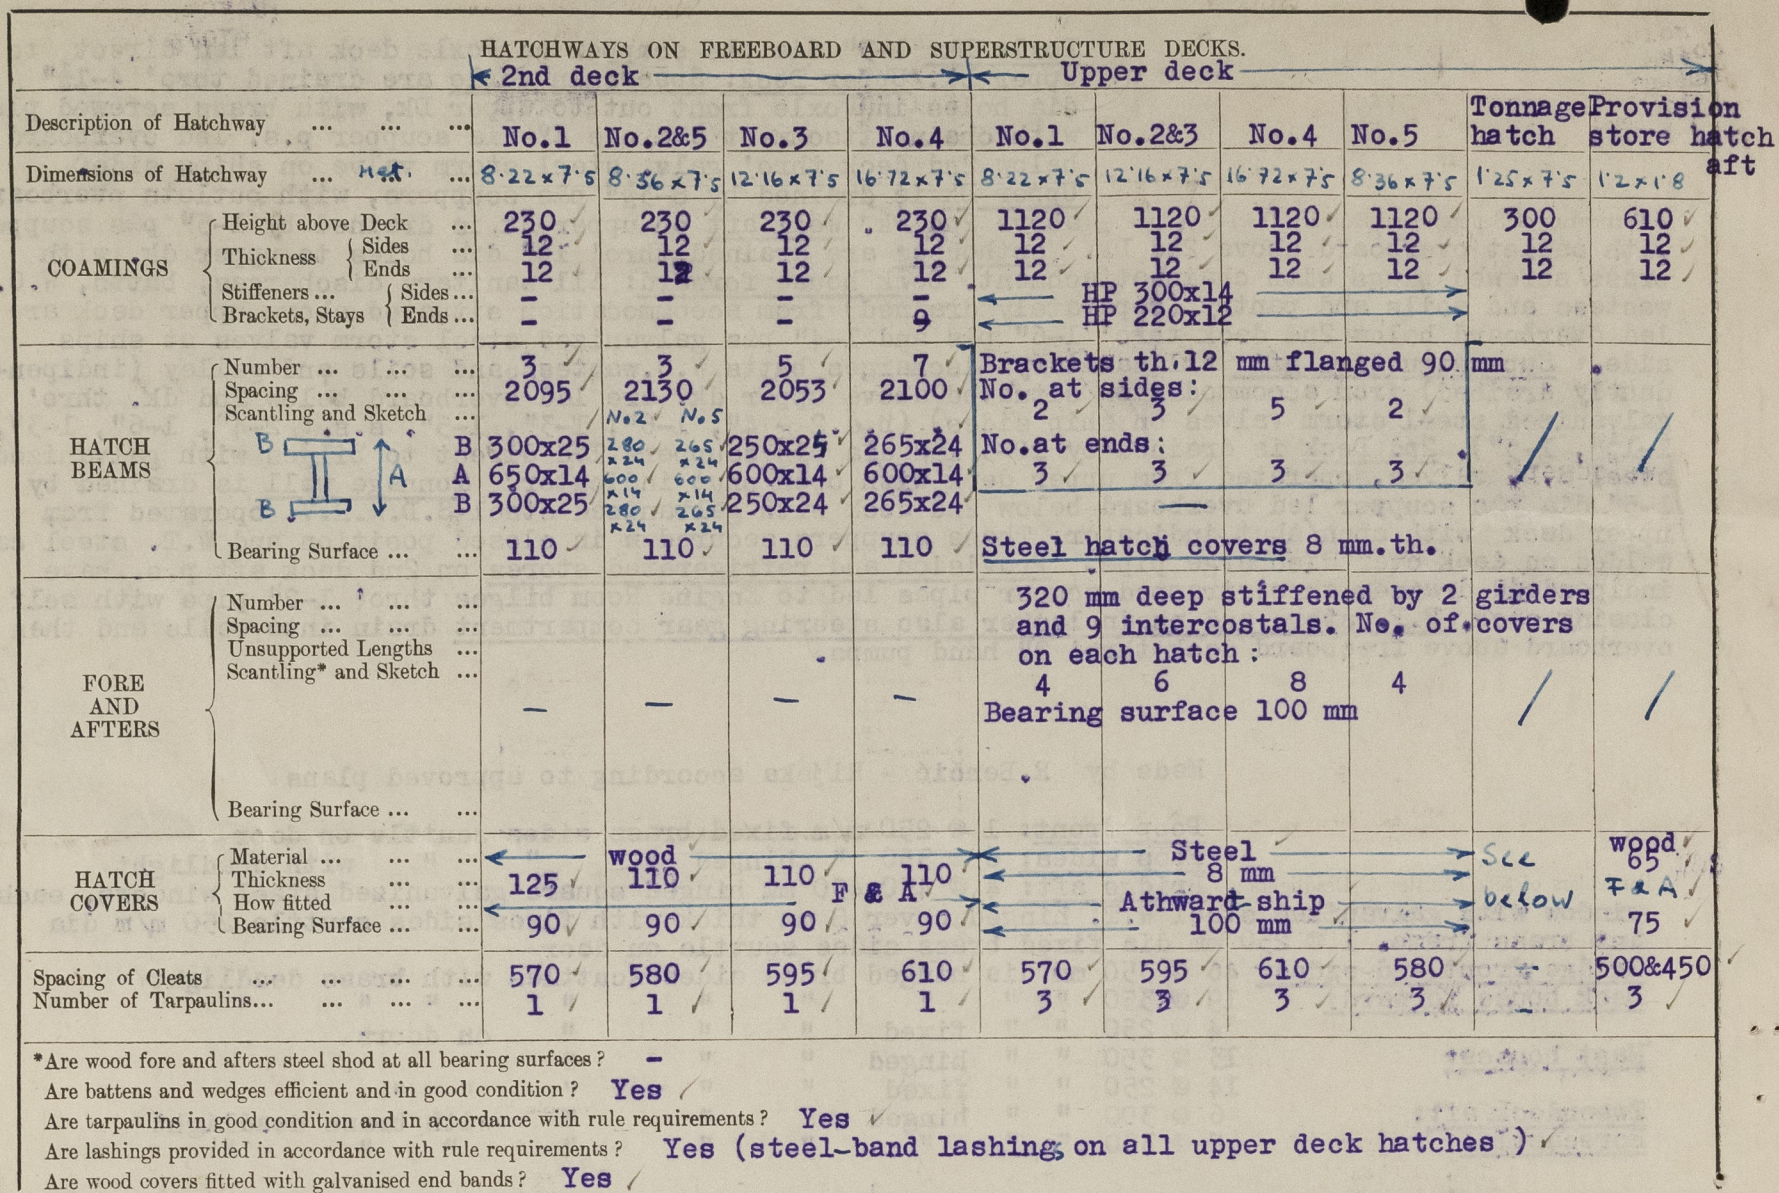 HATCHWAYS ON FREEBOARD AND SUPERSTRUCTURE DECKS.
2nd deck Upper deck
Description of Hatchway ... ... ... No.1 No.2&5 No.3 No.4 No.1 No.2&3 No.4 No.5 Tonnage hatch Provision store hatch aft
Dimensions of Hatchway ... Met. ... 8.22 x 7.5 8.36 x 7.5 12.16 x 7.5 16.72 x 7.5 8.22 x 7.5 12.16 x 7.5 16.72 x 7.5 8.36 x 7.5 1.25 x 7.5 1.2 x 1.8
COAMINGS
Height above Deck ... 230 230 230 230 1120 1120 1120 1120 300 610
Thickness Sides ... 12 12 12 12 12 12 12 12 12 12
Ends ... 12 12 12 12 12 12 12 12 12 12
Stiffeners ... Sides ... - - - - HP 300x14
Brackets, Stays Ends ... - - - 9 HP 220x12
HATCH BEAMS
Number ... ... ... 3 3 5 7 Brackets th.12 mm flanged 90 mm
Spacing ... ... ... 2095 2130 2053 2100 No. at sides:
Scantling and Sketch ... No.2 No.5 2 3 5 2
B B 300x25 280 x24 265 x24 250x25 265x24 No.at ends:
A A 650x14 600 x14 600 x14 600x14 600x14 3 3 3 3
B B 300x25 280 x24 265 x24 250x24 265x24 —
Bearing Surface ... ... 110 110 110 110 Steel hatch covers 8 mm.th.
FORE AND AFTERS
Number ... ... ... 320 mm deep stiffened by 2 girders
Spacing ... ... ... and 9 intercostals. No. of covers
Unsupported Lengths ... on each hatch :
Scantling* and Sketch ... 4 6 8 4
— — — — Bearing surface 100 mm / /
Bearing Surface ... ...
HATCH COVERS
Material ... ... ... wood Steel See wood
Thickness ... ... 125 110 110 110 8 mm 65
How fitted ... ... F & A Athward-ship below F & A
Bearing Surface ... ... 90 90 90 90 100 mm 75
Spacing of Cleats ... ... ... ... 570 580 595 610 570 595 610 580 - 500&450
Number of Tarpaulins... ... ... ... 1 1 1 1 3 3 3 3 - 3
*Are wood fore and afters steel shod at all bearing surfaces ? -
Are battens and wedges efficient and in good condition ? Yes
Are tarpaulins in good condition and in accordance with rule requirements ? Yes
Are lashings provided in accordance with rule requirements ? Yes (steel-band lashing, on all upper deck hatches )
Are wood covers fitted with galvanised end bands ? Yes